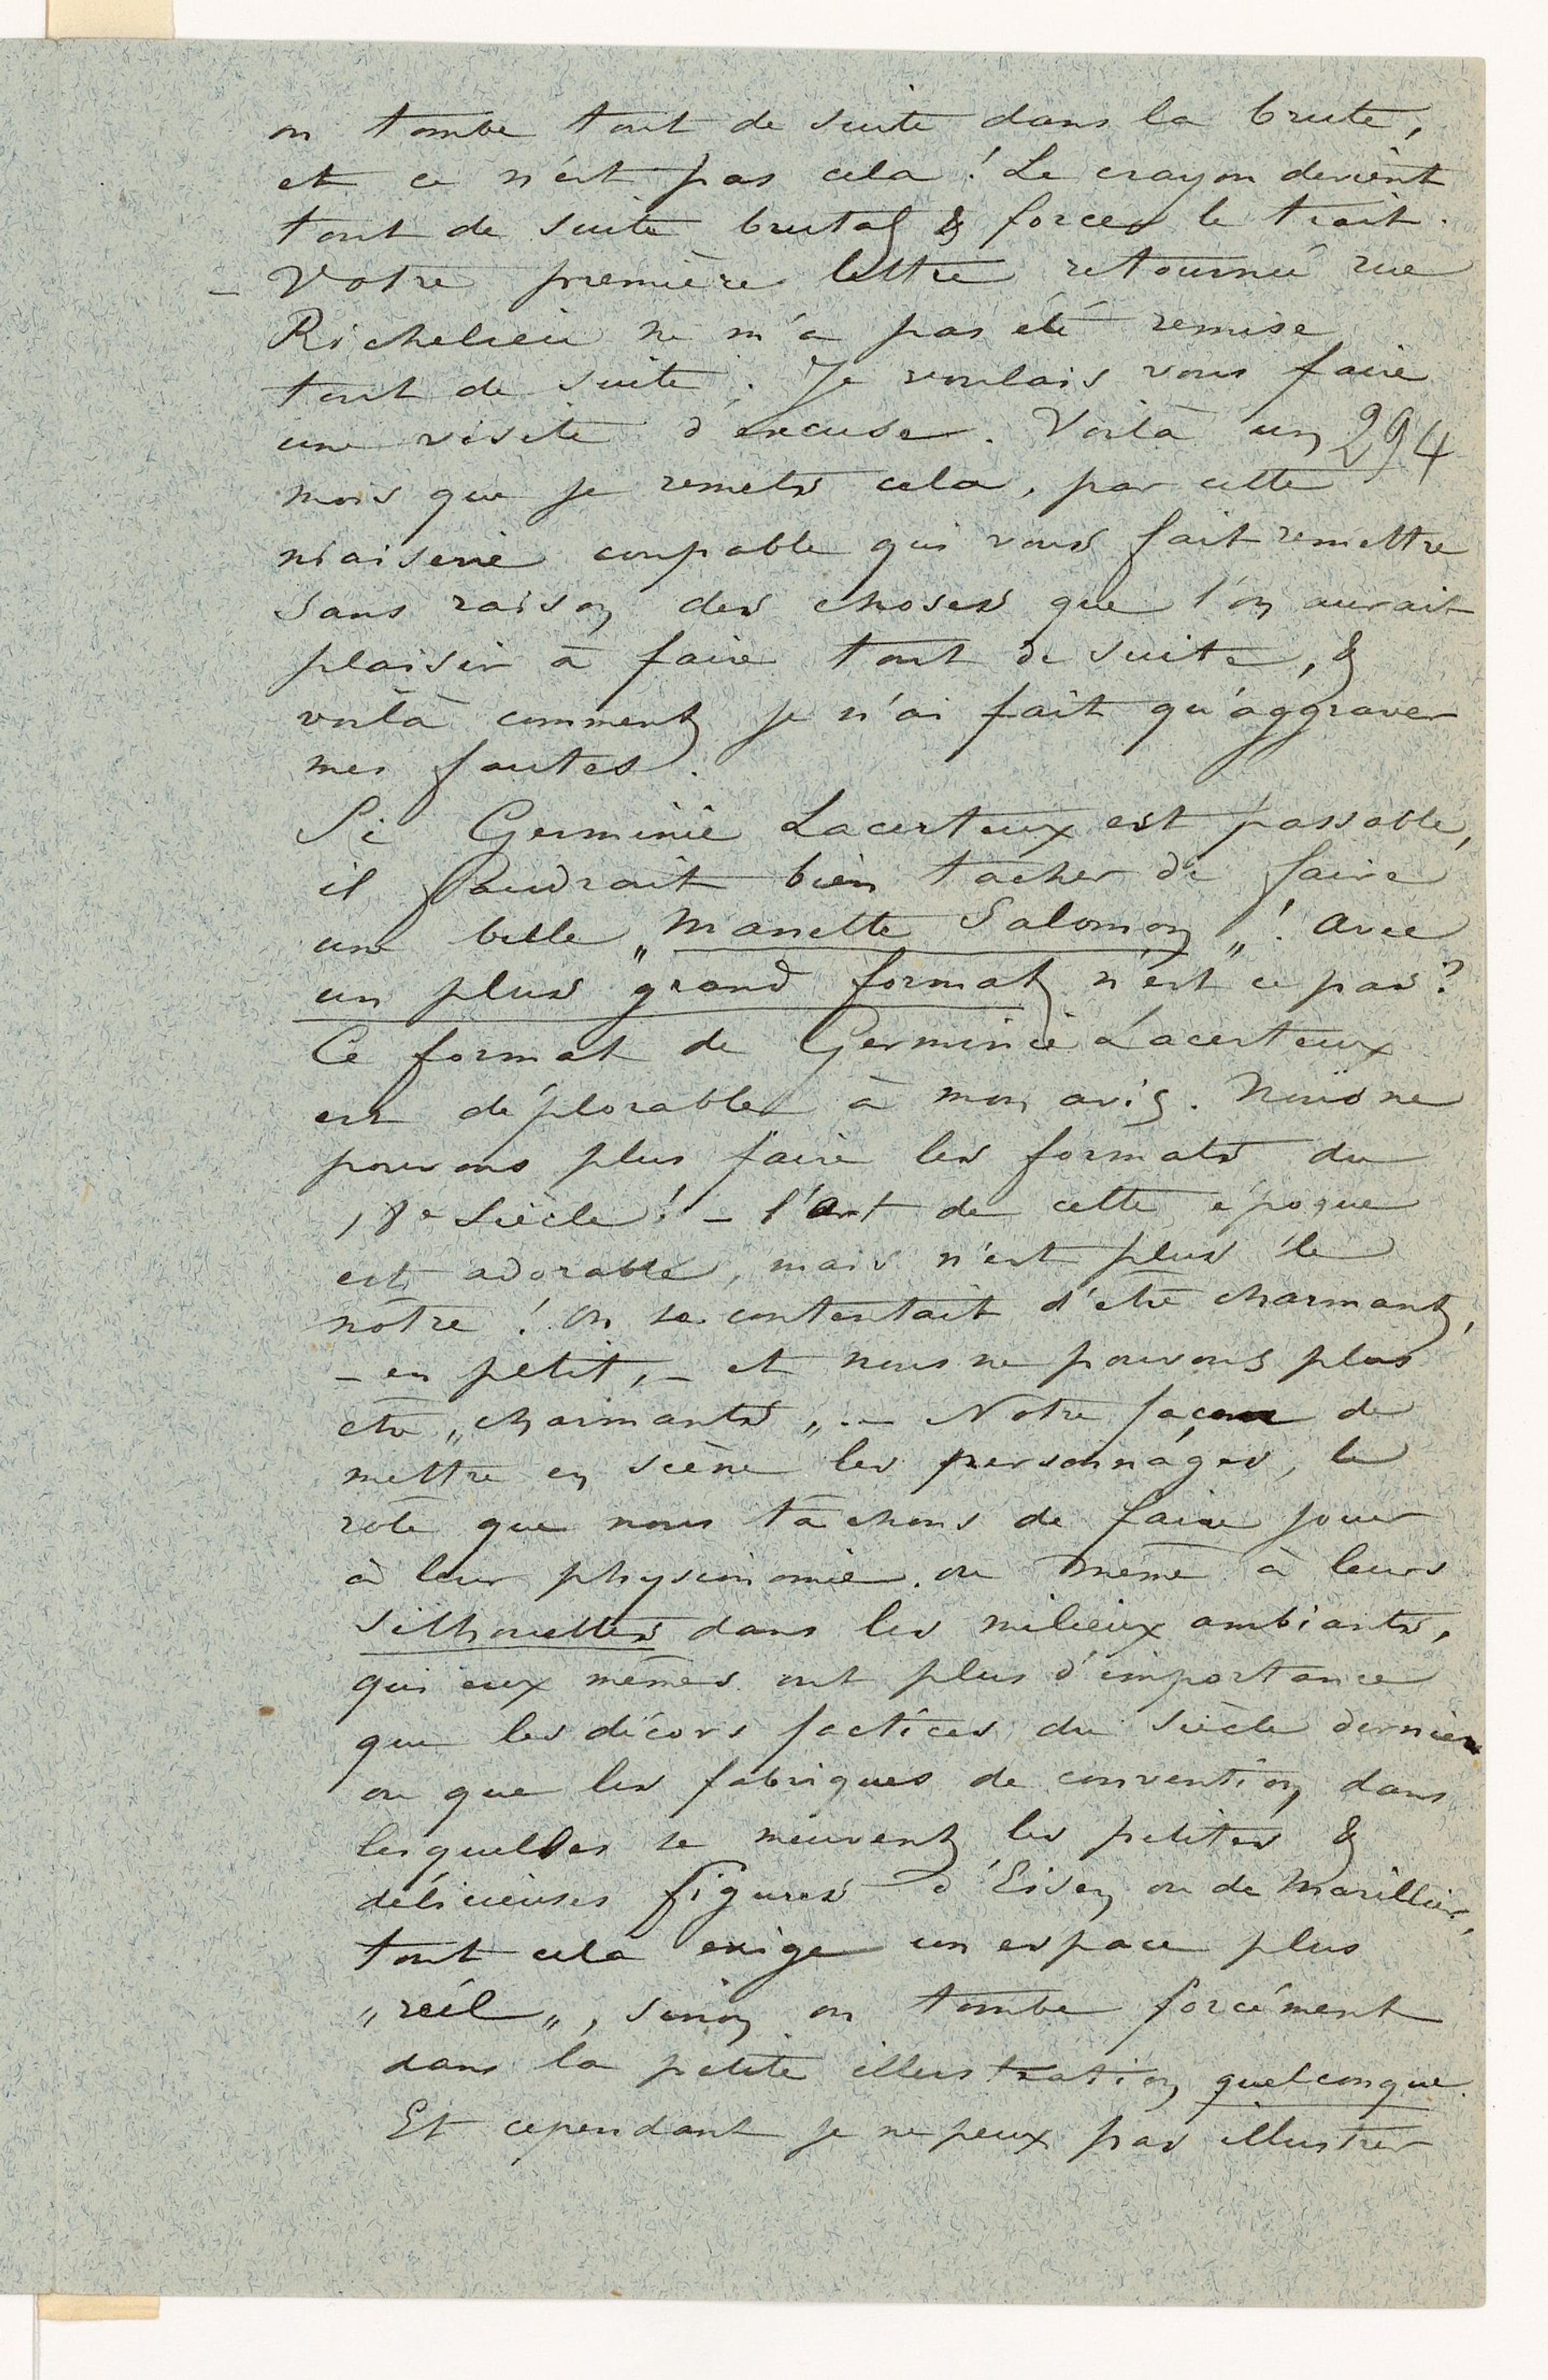 on tombe tout de suite dans la brute,
et ce n'est pas cela ! Le crayon devient
tout de suite brutal & forces le trait.
_ Votre première lettre retournée rue
Richelieu ne m'a pas été remise
tout de suite. Je voulais vous faire
une visite d'excuse. Voilà un
294
mois que je remets cela, par cette
niaiserie coupable qui vous fait remettre
sans raison des choses que l'on aurait
plaisir à faire tout de suite, &
voilà comment je n'ai fait qu'aggraver
mes fautes.
Si Germinie Lacerteux est passable,
il faudrait bien tacher de faire
une belle „Manette Salomon„ ! avec
un plus grand format n'est ce pas ?
Ce format de Germinie Lacerteux
est déplorable à mon avis. Nous ne
pouvons plus faire les formats du
18e Siècle ! _ l'art de cette époque
est adorable, mais n'est plus le
nôtre ! On se contentait d'être charmant,
_ en petit, _ et nous ne pouvons plus
être „charmants„. _ Notre façon de
mettre en scène les personnages, le
rôle que nous tâchons de faire jouer
à leur physionomie. ou même à leurs
silhouettes dans les milieux ambiants,
qui eux mêmes ont plus d'importance
que les décors factices du siècle dernier
ou que les fabriques de convention dans
lesquelles se meuvent les petites &
délicieuses figures d'Eisen ou de Marillier,
tout cela exige un espace plus
„réel„, sinon on tombe forcément
dans la petite illustration quelconque.
Et cependant je ne peux pas illustrer